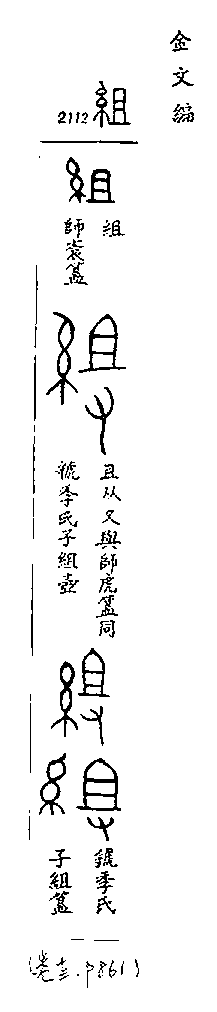 金文編
2112 組
組
師㝨簋
且从又與師虎簋同
虢季氏子組壺
虢季氏
子組簋
(卷十三.P861)